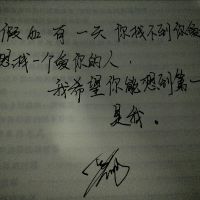 假如有一天你找不到你爱
想找一个爱你的人，
我希望你能想到第一
是我。